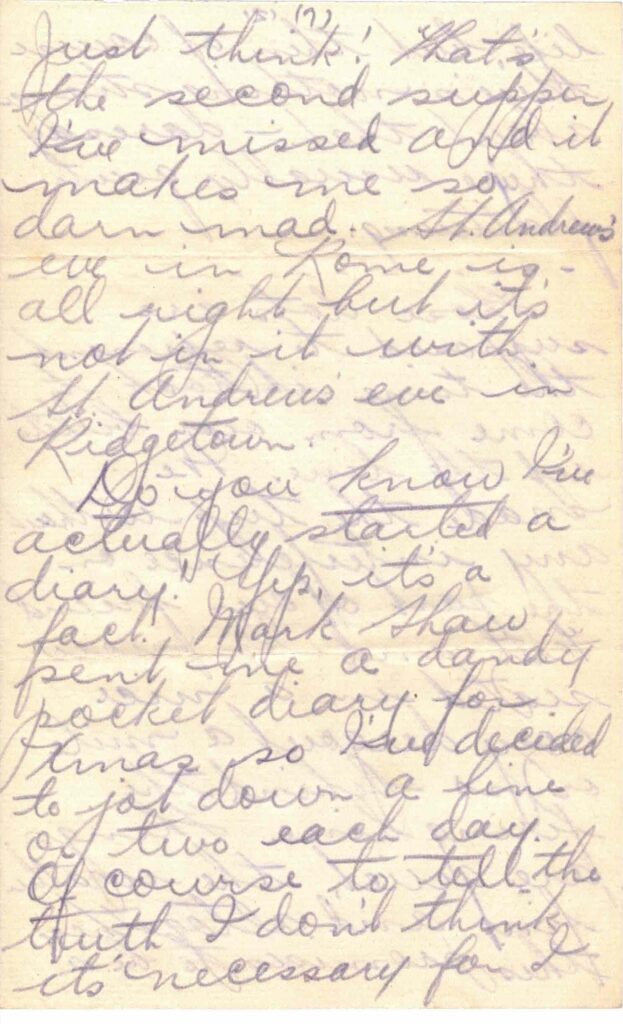 (7)
Just think! That's
the second supper
I've missed and it
makes me so
darn mad. St. Andrew's
eve in Rome is
all right but it's
not in it with
St Andrew's eve in
Ridgetown.
Do you know I've
actually started a
diary! Yep, it's a
fact. Mark Shaw
sent me a dandy
pocket diary for
Xmas so I've decided
to jot down a line
or two each day.
Of course to tell the
truth I don't think
it's necessary for I